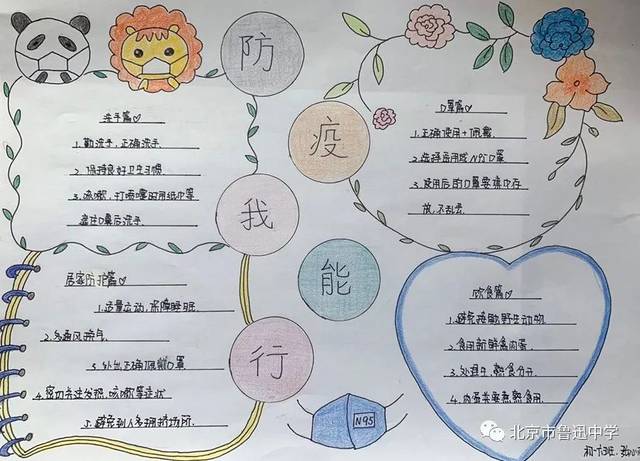 防
疫
我
能
行
洗手篇
1.勤洗手、正确洗手.
2.保持良好卫生习惯
3.咳嗽、打喷嚏时用纸巾等
遮住口鼻后洗手.
口罩篇
1.正确使用+佩戴.
2.选择医用或N95口罩
3.使用后的口罩要集中存
放,不乱丢.
居家防护篇
1.适量运动,保障睡眠.
2.多通风换气.
3.外出正确佩戴口罩
4.密切关注发热、咳嗽等症状
5.避免到人多拥挤场所.
饮食篇
1.避免接触野生动物
2.食用新鲜禽肉蛋.
3.处理生、熟食分开.
4.肉蛋类要煮熟食用.
N95
北京市鲁迅中学